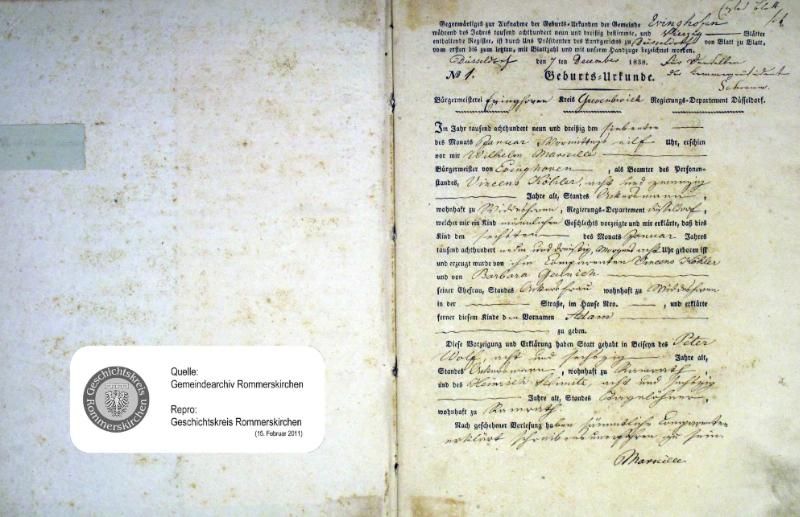 Quelle:
Gemeindearchiv Rommerskirchen
Repro:
Geschichtskreis Rommerskirchen
(15. Februar 2011)
Geschichtskreis
Rommerskirchen
Gegenwärtiges zur Aufnahme der Geburts-Urkunden der Gemeinde Evinghofen
während des Jahres tausend achthundert neun und dreißig bestimmte, und Blätter
enthaltende Register, ist durch Uns Präsidenten des Landgerichts zu Düsseldorf von Blatt zu Blatt,
vom ersten bis zum letzten, mit Blattzahl und mit unserm Handzuge bezeichnet worden.
Düsseldorf den 7ten December 1838. Für denselben
No 1. Geburts-Urkunde.
Bürgermeisterei Evinghoven Kreis Grevenbroich Regierungs-Departement Düsseldorf.
Im Jahr tausend achthundert neun und dreißig den siebenten
des Monats Januar Vormittags eilf Uhr, erschien
vor mir Wilhelm Marseille
Bürgermeister von Evinghoven, als Beamter des Personen-
standes, Vincens Köhler, acht und zwanzig
Jahre alt, Standes Ackersmann,
wohnhaft zu Widdeshoven, Regierungs-Departement Düsseldorf,
welcher mir ein Kind männlichen Geschlechts vorzeigte und mir erklärte, daß dies
Kind den sechsten des Monats Januar Jahres
tausend achthundert neun und dreißig, Morgens acht Uhr geboren ist
und erzeugt wurde von ihm Comparenten Vincens Köhler
und von Barbara
seiner Ehefrau, Standes Ackersfrau wohnhaft zu Widdeshoven
in der Straße, im Hause Nro. , und erklärte
ferner diesem Kinde den Vornamen Adam
zu geben.
Diese Vorzeigung und Erklärung haben Statt gehabt in Beiseyn des Peter
Wolf, acht und sechszig Jahre alt,
Standes Ackersmann, wohnhaft zu Ramrath
und des Heinrich Schmitz, acht und sechszig
Jahre alt, Standes Tagelöhner,
wohnhaft zu Ramrath
Nach geschehener Vorlesung haben sämmtliche Comparenten
erklärt schreibensunerfahren zu sein
Marseille